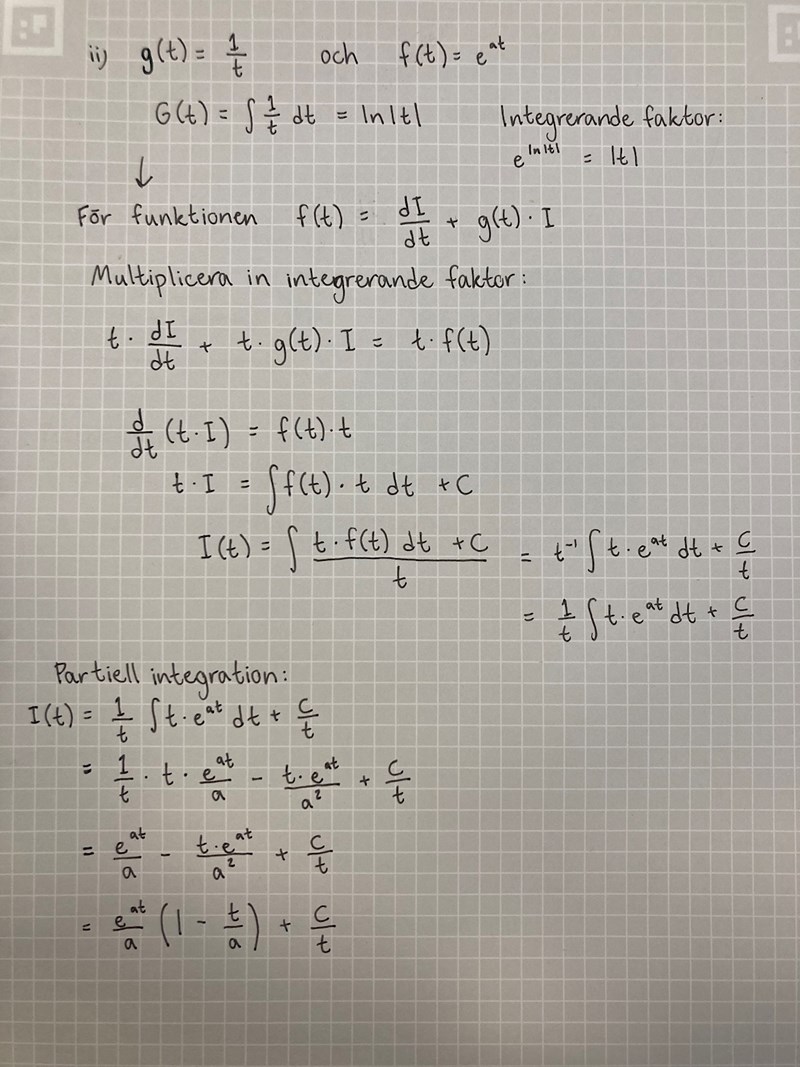 ii) g(t) = 1/t och f(t) = e^at
G(t) = ∫ 1/t dt = ln|t| Integrerande faktor:
e^ln|t| = |t|
↓
För funktionen f(t) = dI/dt + g(t) · I
Multiplicera in integrerande faktor:
t · dI/dt + t · g(t) · I = t · f(t)
d/dt (t · I) = f(t) · t
t · I = ∫ f(t) · t dt + C
I(t) = ∫ (t · f(t) dt + C)/t = t^-1 ∫ t · e^at dt + C/t
= 1/t ∫ t · e^at dt + C/t
Partiell integration:
I(t) = 1/t ∫ t · e^at dt + C/t
= 1/t · t · e^at/a - t · e^at/a^2 + C/t
= e^at/a - t · e^at/a^2 + C/t
= e^at/a (1 - t/a) + C/t